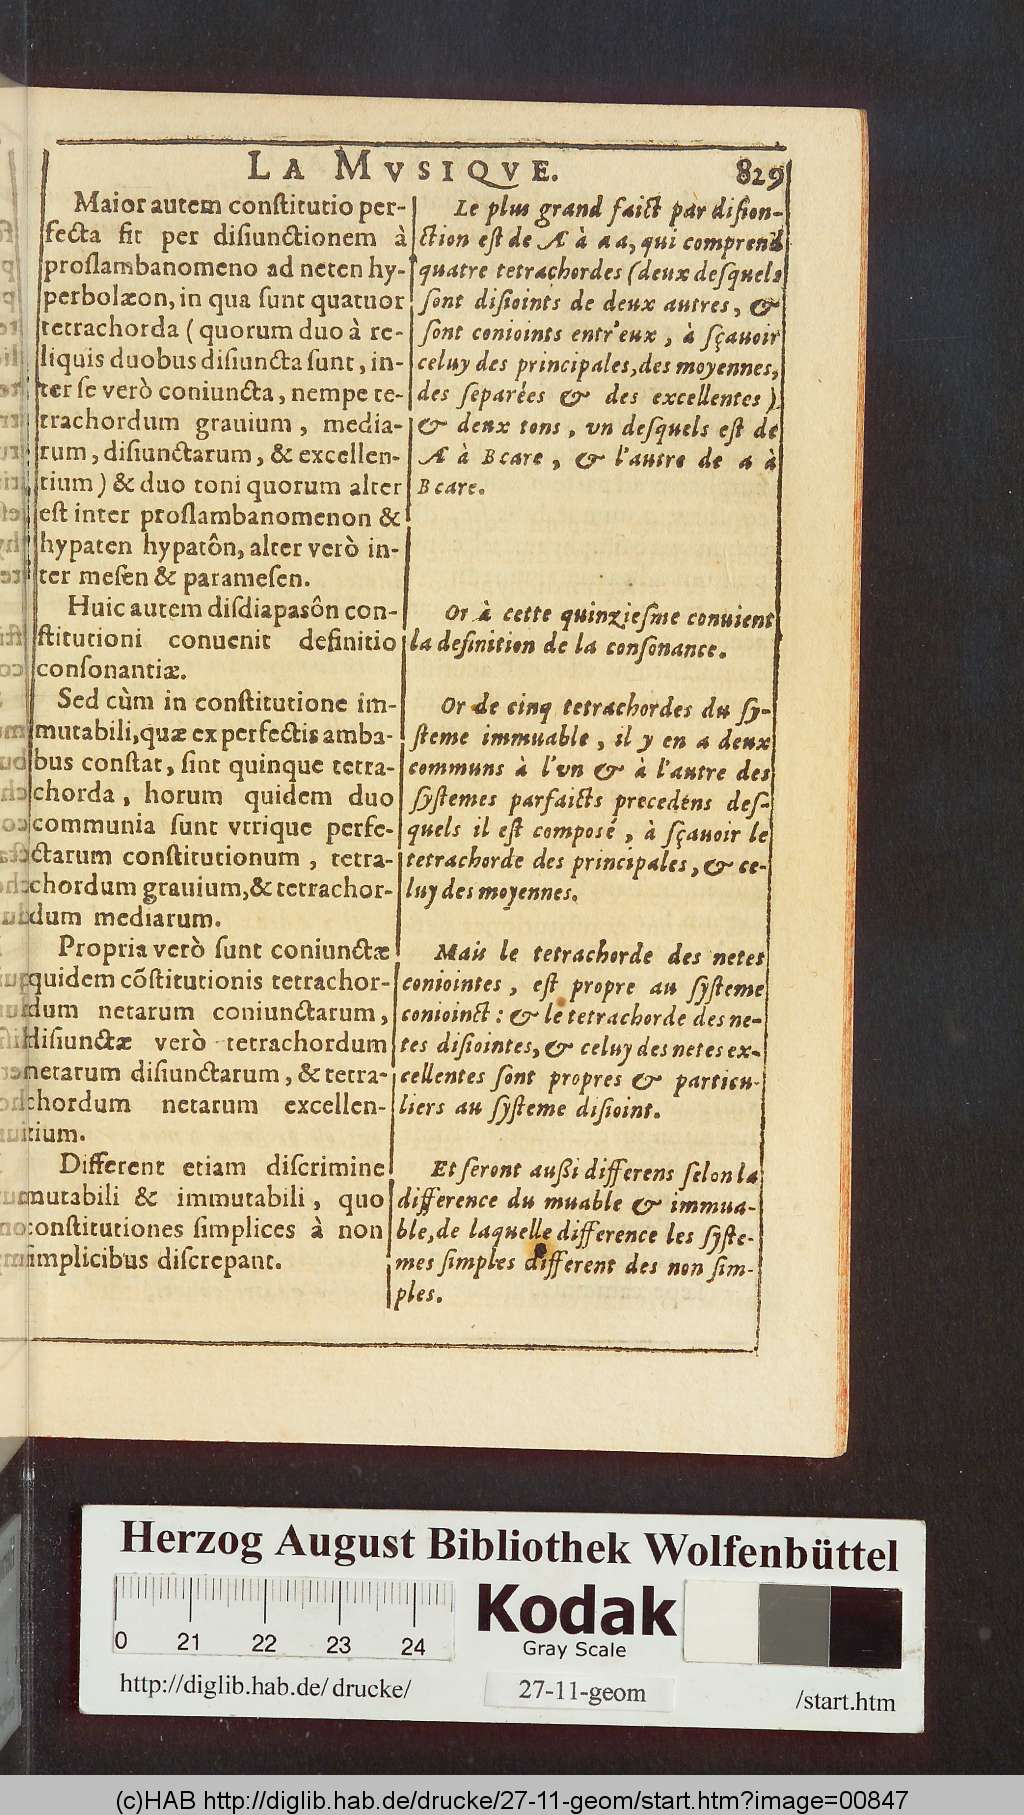 LA MVSIQVE. 829
Maior autem constitutio per-
fecta fit per disiunctionem à
proslambanomeno ad neten hy-
perbolæon, in qua sunt quatuor
tetrachorda ( quorum duo à re-
liquis duobus disiuncta sunt, in-
ter se verò coniuncta, nempe te-
trachordum grauium, media-
rum, disiunctarum, & excellen-
tium ) & duo toni quorum alter
est inter proslambanomenon &
hypaten hypatôn, alter verò in-
ter mesen & paramesen.
Huic autem disdiapasôn con-
stitutioni conuenit definitio
consonantiæ.
Sed cùm in constitutione im-
mutabili, quæ ex perfectis amba-
bus constat, sint quinque tetra-
chorda, horum quidem duo
communia sunt vtrique perfe-
ctarum constitutionum, tetra-
chordum grauium, & tetrachor-
dum mediarum.
Propria verò sunt coniunctæ
quidem cõstitutionis tetrachor-
dum netarum coniunctarum,
disiunctæ verò tetrachordum
netarum disiunctarum, & tetra-
chordum netarum excellen-
tium.
Different etiam discrimine
mutabili & immutabili, quo
constitutiones simplices à non
simplicibus discrepant.
Le plus grand faict par dision-
ction est de A à aa, qui comprend
quatre tetrachordes (deux desquels
sont disioints de deux autres, &
sont conioints entr'eux, à sçauoir
celuy des principales, des moyennes,
des separées & des excellentes )
& deux tons, vn desquels est de
A à B care, & l'autre de a à
B care.
Or à cette quinziesme conuient
la definition de la consonance.
Or de cinq tetrachordes du sy-
steme immuable, il y en a deux
communs à l'vn & à l'autre des
systemes parfaicts precedens des-
quels il est composé, à sçauoir le
tetrachorde des principales, & ce-
luy des moyennes.
Mais le tetrachorde des netes
coniointes, est propre au systeme
conioinct : & le tetrachorde des ne-
tes disiointes, & celuy des netes ex-
cellentes sont propres & particu-
liers au systeme disioint.
Et seront aussi differens selon la
difference du muable & immua-
ble, de laquelle difference les syste-
mes simples different des non sim-
ples.
Herzog August Bibliothek Wolfenbüttel
0 21 22 23 24
Kodak
Gray Scale
http://diglib.hab.de/ drucke/
27-11-geom
/start.htm
(c)HAB http://diglib.hab.de/drucke/27-11-geom/start.htm?image=00847